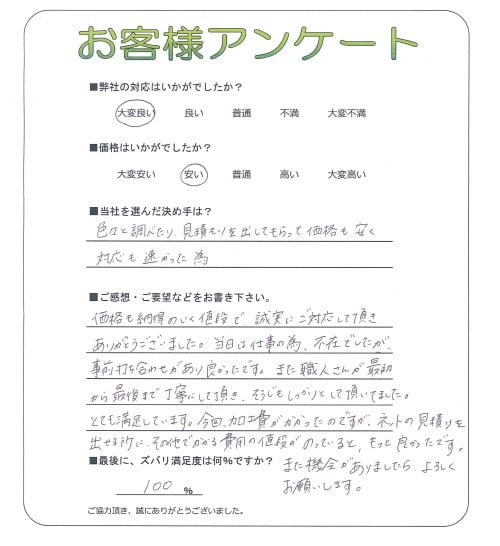 お客様アンケート
■弊社の対応はいかがでしたか？
大変良い 良い 普通 不満 大変不満
■価格はいかがでしたか？
大変安い 安い 普通 高い 大変高い
■当社を選んだ決め手は？
色々と調べたり、見積もりを出してもらって価格も安く
対応も速かった為
■ご感想・ご要望などをお書き下さい。
価格も納得のいく値段で、誠実にご対応して頂き
ありがとうございました。当日は仕事の為、不在でしたが、
事前打ち合わせがあり良かったです。また職人さんが最初
から最後まで丁寧にして頂き、そうじもしっかりとして頂いてました。
とても満足しています。今回、加工費がかかったのですが、ネットの見積りを
出せる所に、その他でかかる費用の値段がのっていると、もっと良かったです。
また機会がありましたら、よろしく
お願いします。
■最後に、ズバリ満足度は何％ですか？
100 ％
ご協力頂き、誠にありがとうございました。